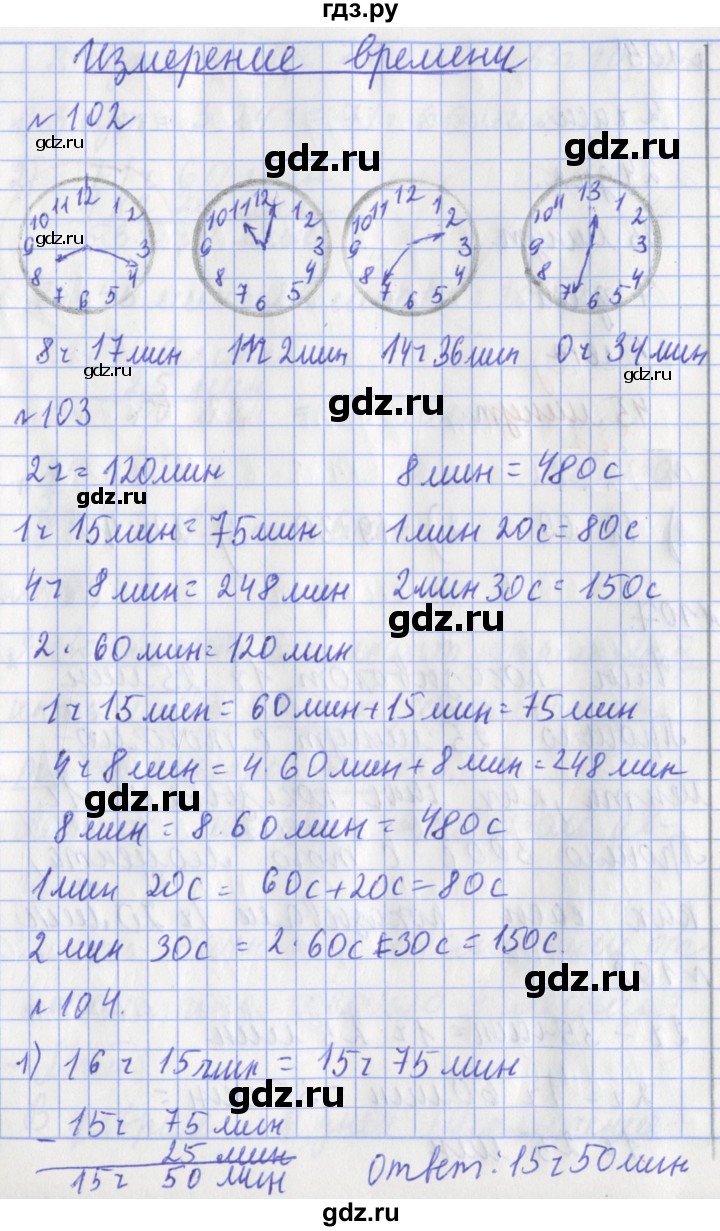 гдз.ру
Измерение времени
№102
gdz.ru
gdz.ru gdz.ru
12 1 2 3 4 5 6 7 8 9 10 11
12 1 2 3 4 5 6 7 8 9 10 11
12 1 2 3 4 5 6 7 8 9 10 11
13 1 2 3 4 5 6 7 8 9 10 11
gdz.ru
gdz.ru gdz.ru
8ч 17мин 2мин 14ч 36мин 0ч 34мин
gdz.ru gdz.ru
№103
gdz.ru
2ч = 120мин 8мин = 480с
gdz.ru
1ч 15мин = 75мин 1мин 20с = 80с
4ч 8мин = 248мин 2мин 30с = 150с
gdz.ru
2 · 60мин = 120мин
1ч 15мин = 60мин + 15мин = 75мин
4ч 8мин = 4 · 60мин + 8мин = 248мин
gdz.ru
8мин = 8 · 60мин = 480с
1мин 20с = 60с + 20с = 80с
2мин 30с = 2 · 60с = 30с = 150с.
gdz.ru
№104.
1) 16ч 15мин = 15ч 75мин
gdz.ru
- 15ч 75мин
25мин
15ч 50мин Ответ: 15ч 50мин
gdz.ru